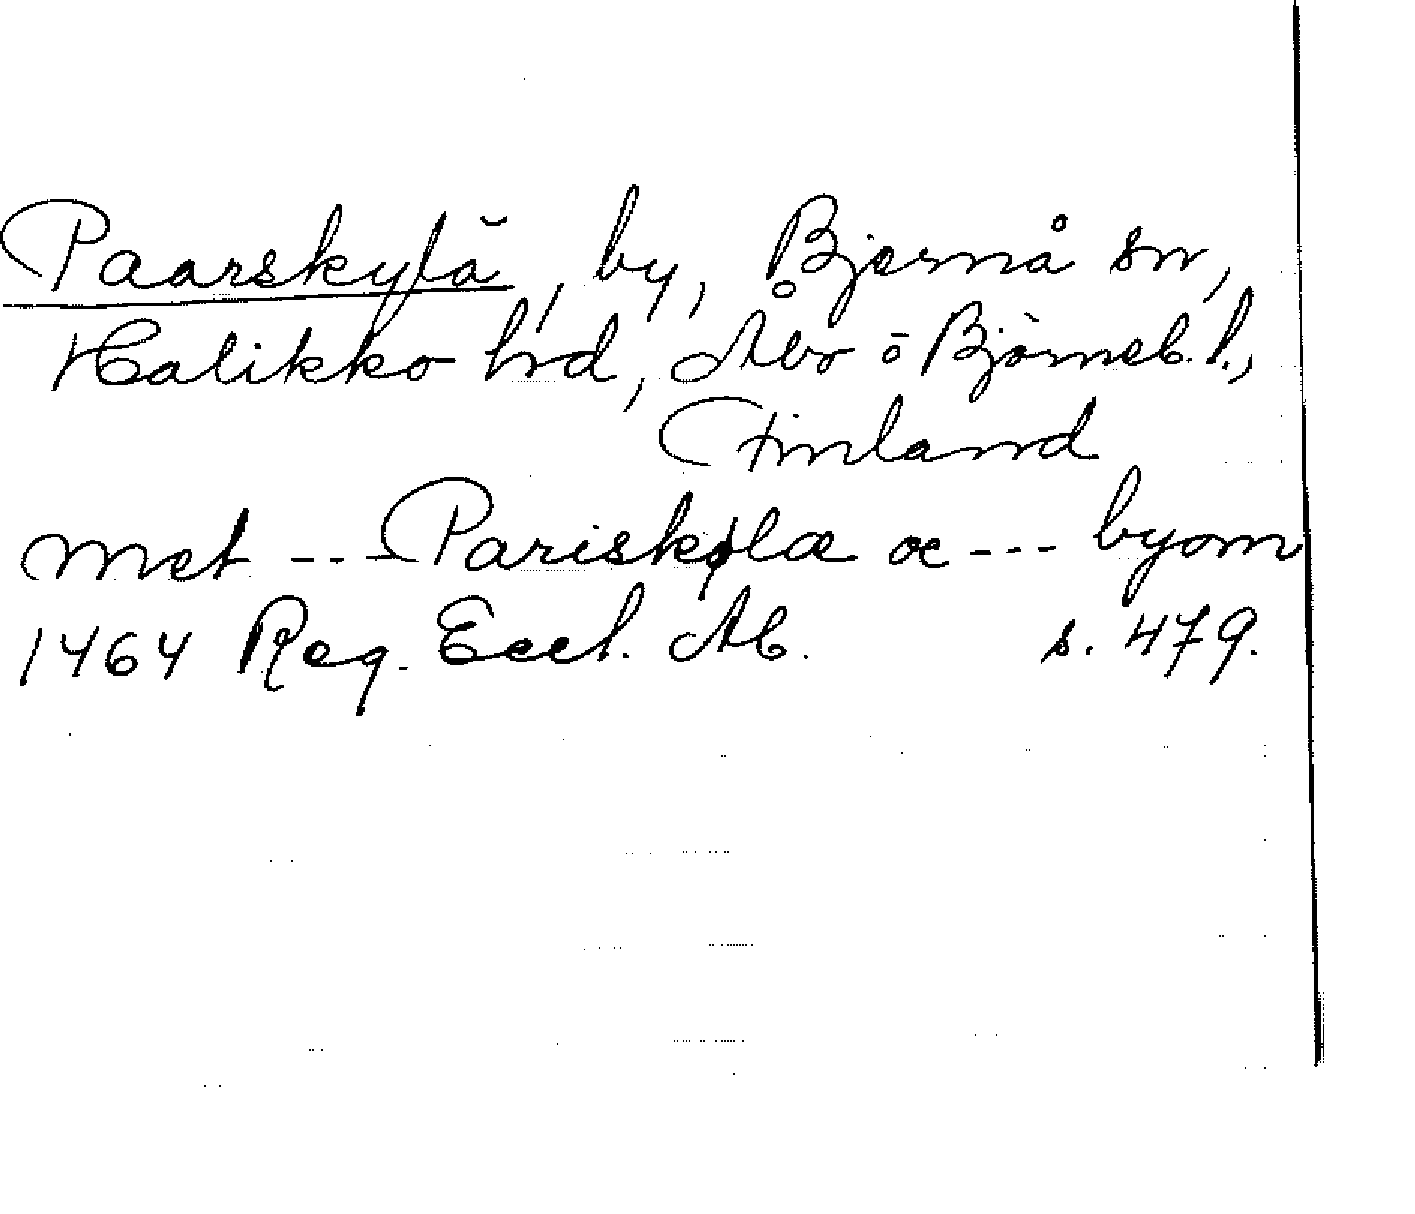 Paarskylä, by, Bjernå sn,
Halikko hd, Åbo o Björneb. l.,
Finland
met --- Pariskøla oc --- byom
1464 Reg. Eccl. Ab. s. 479.